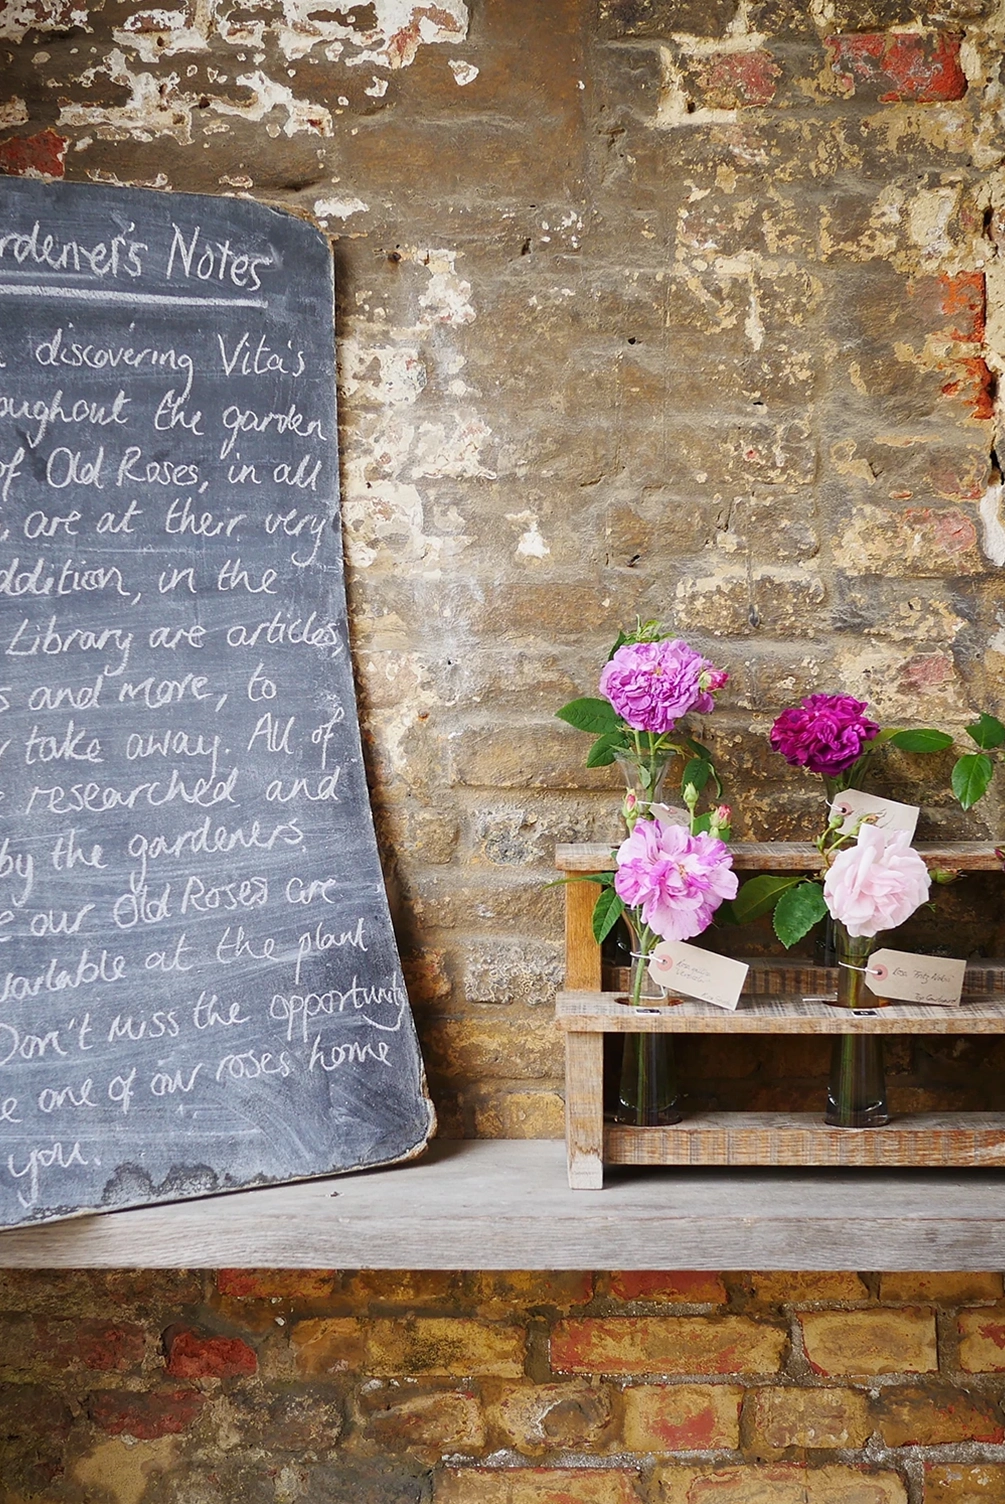 rdener's Notes
discovering Vita's
oughout the garden
of Old Roses, in all
, are at their very
ddition, in the
Library are articles,
s and more, to
take away. All of
researched and
by the gardeners.
e our Old Roses are
vailable at the plant
Don't miss the opportunity
e one of our roses home
you.